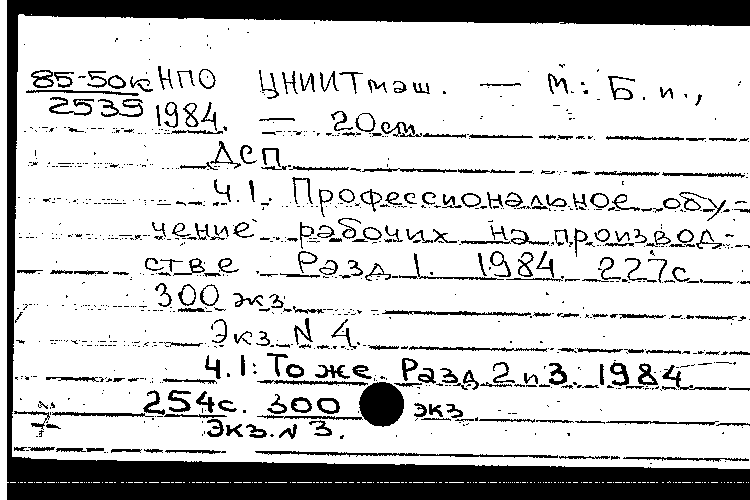 85-50к НПО ЦНИИТмаш. — М.: Б. и.,
2535 1984. — 20см
ДСП
Ч.1. Профессиональное обу-
чение рабочих на производ-
стве Разд 1. 1984. 227с
300 экз.
Экз N 4.
Ч.1: То же. Разд 2 и 3. 1984
254с. 300 экз
Экз. N 3.